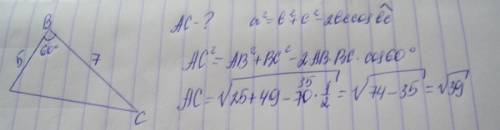 B
60°
5
7
C
AC - ?
a² = b² + c² - 2bc cos b͡c
AC² = AB² + BC² - 2AB·BC·cos60°
AC = √(25 + 49 - 70·1/2) = √(74 - 35) = √39
35